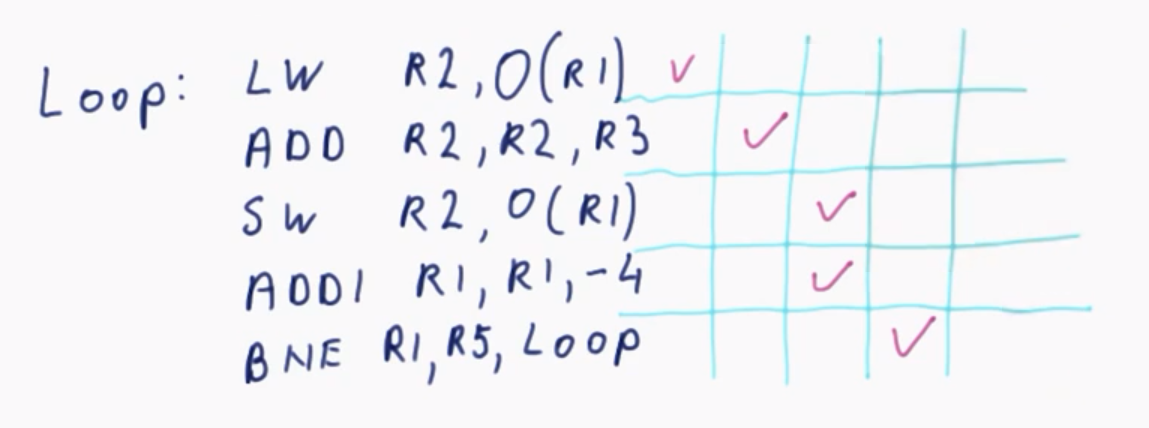 Loop: LW R2, 0(R1) ✓
ADD R2, R2, R3 ✓
SW R2, 0(R1) ✓
ADDI R1, R1, -4 ✓
BNE R1, R5, Loop ✓